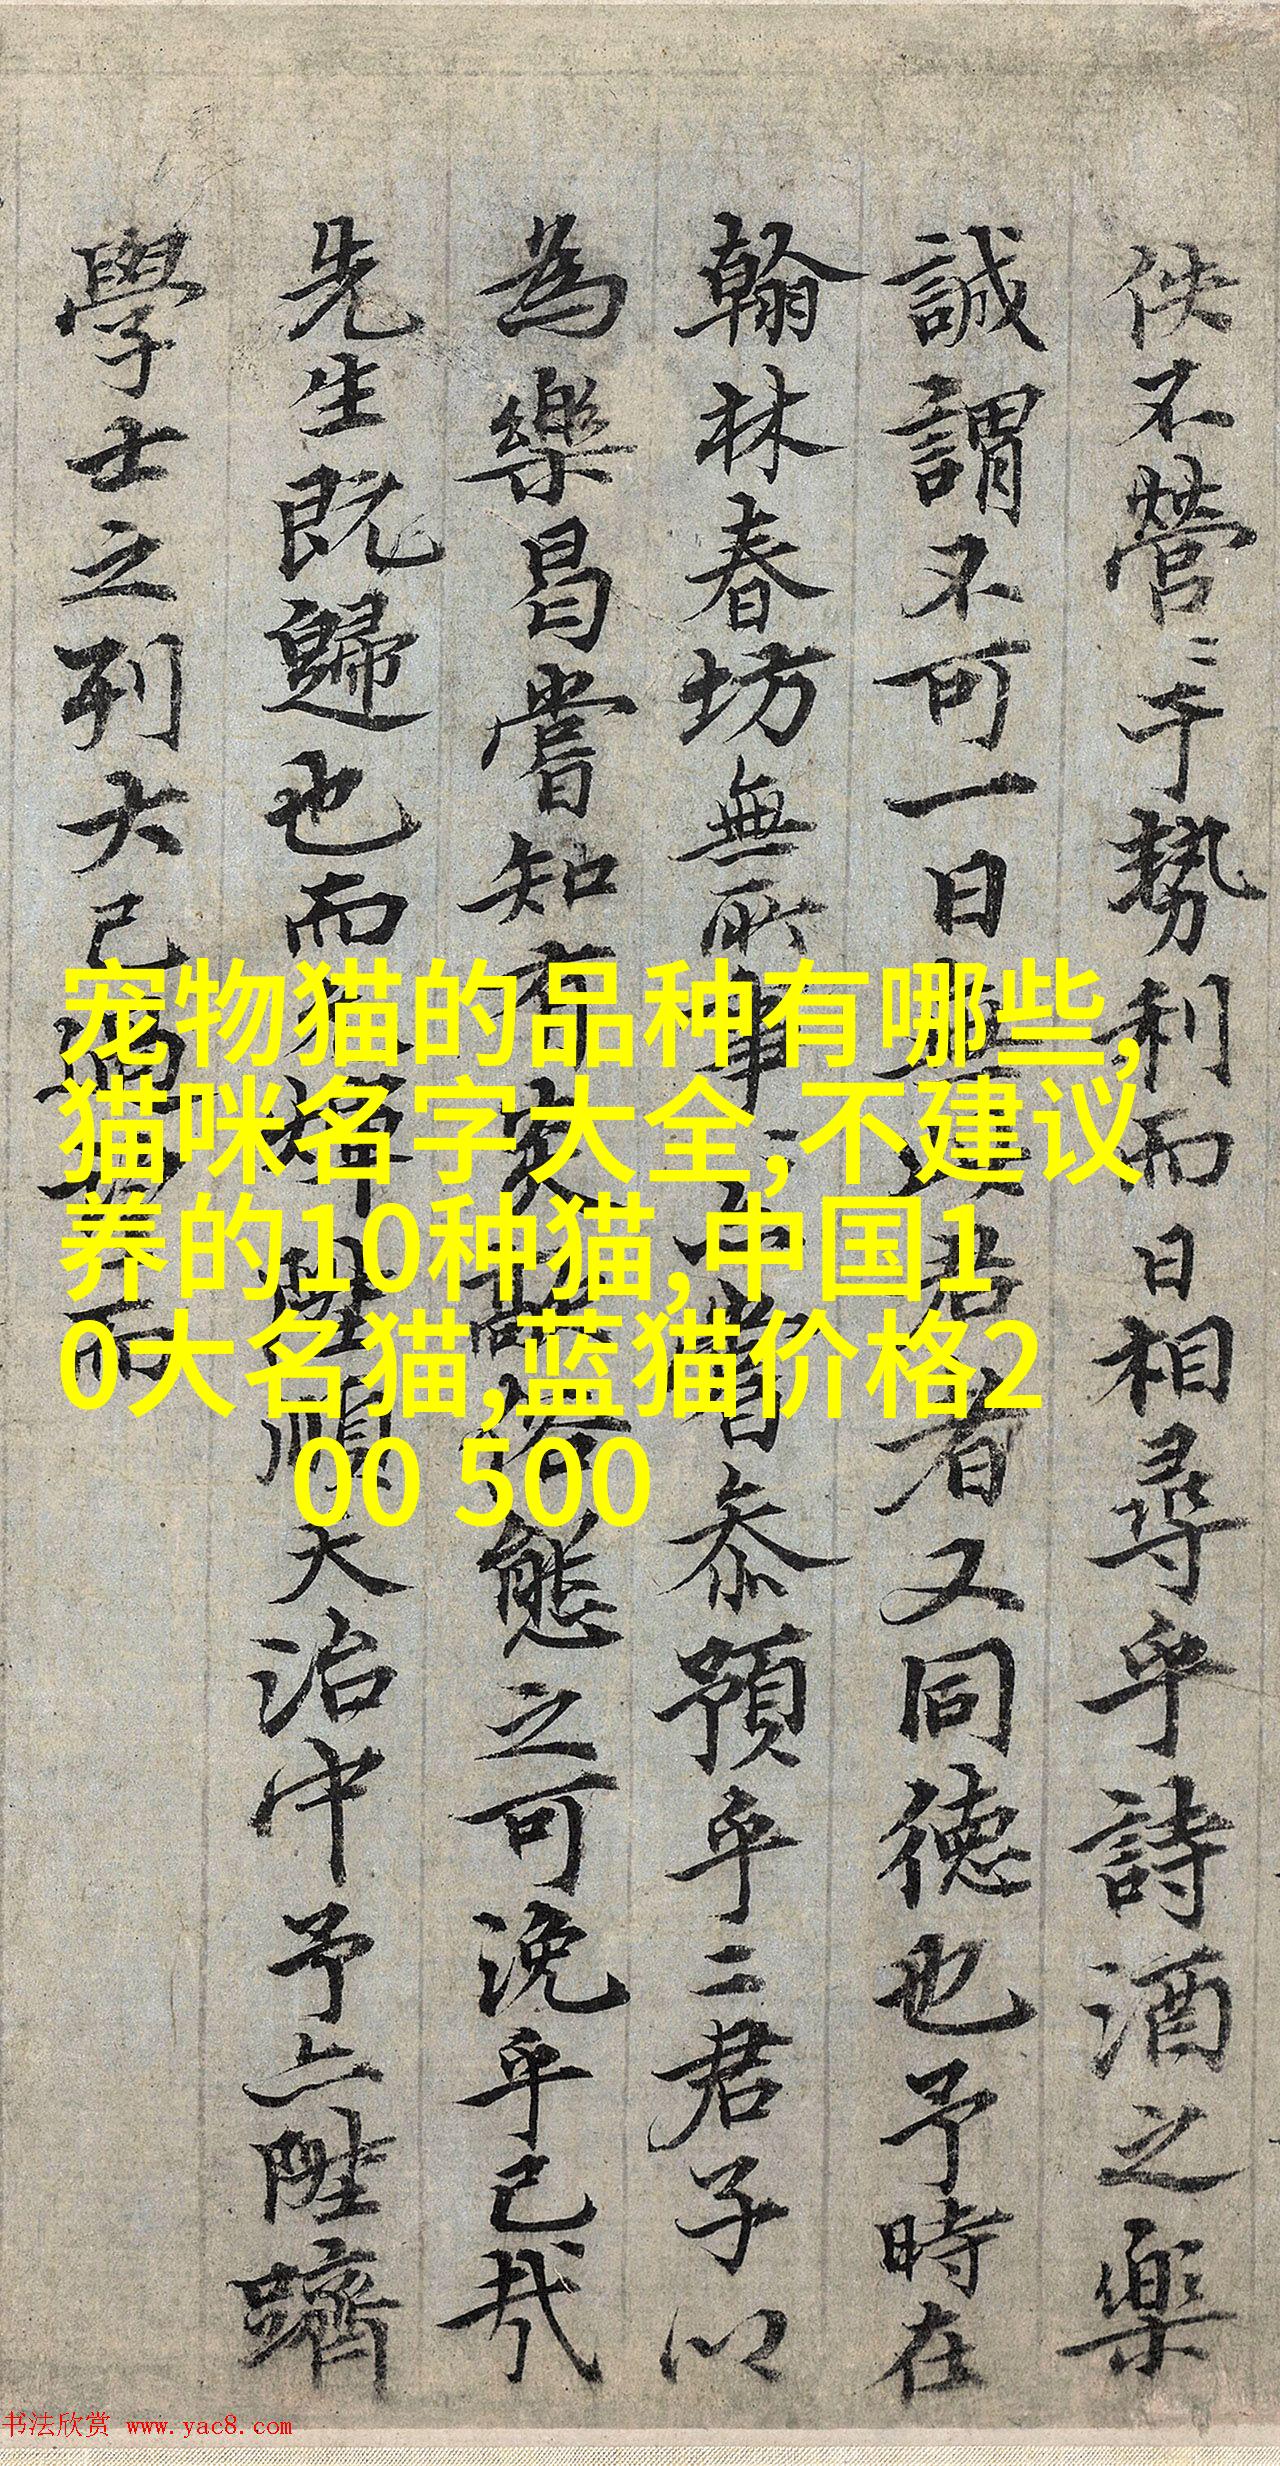 佚不營〻于勢利而日相尋乎詩酒之樂
誠謂不可一日君者又同德也予時在
翰林春坊無所事〻甞忝預乎二君子以
為樂曷嘗知有家俗態之可浼乎已哉
先生既歸也而順大治中予亦陞躋
學士之列大已而
宠物猫的品种有哪些,
猫咪名字大全,不建议
养的10种猫,中国1
0大名猫,蓝猫价格2
00 500
书法欣赏 www.yac8.com